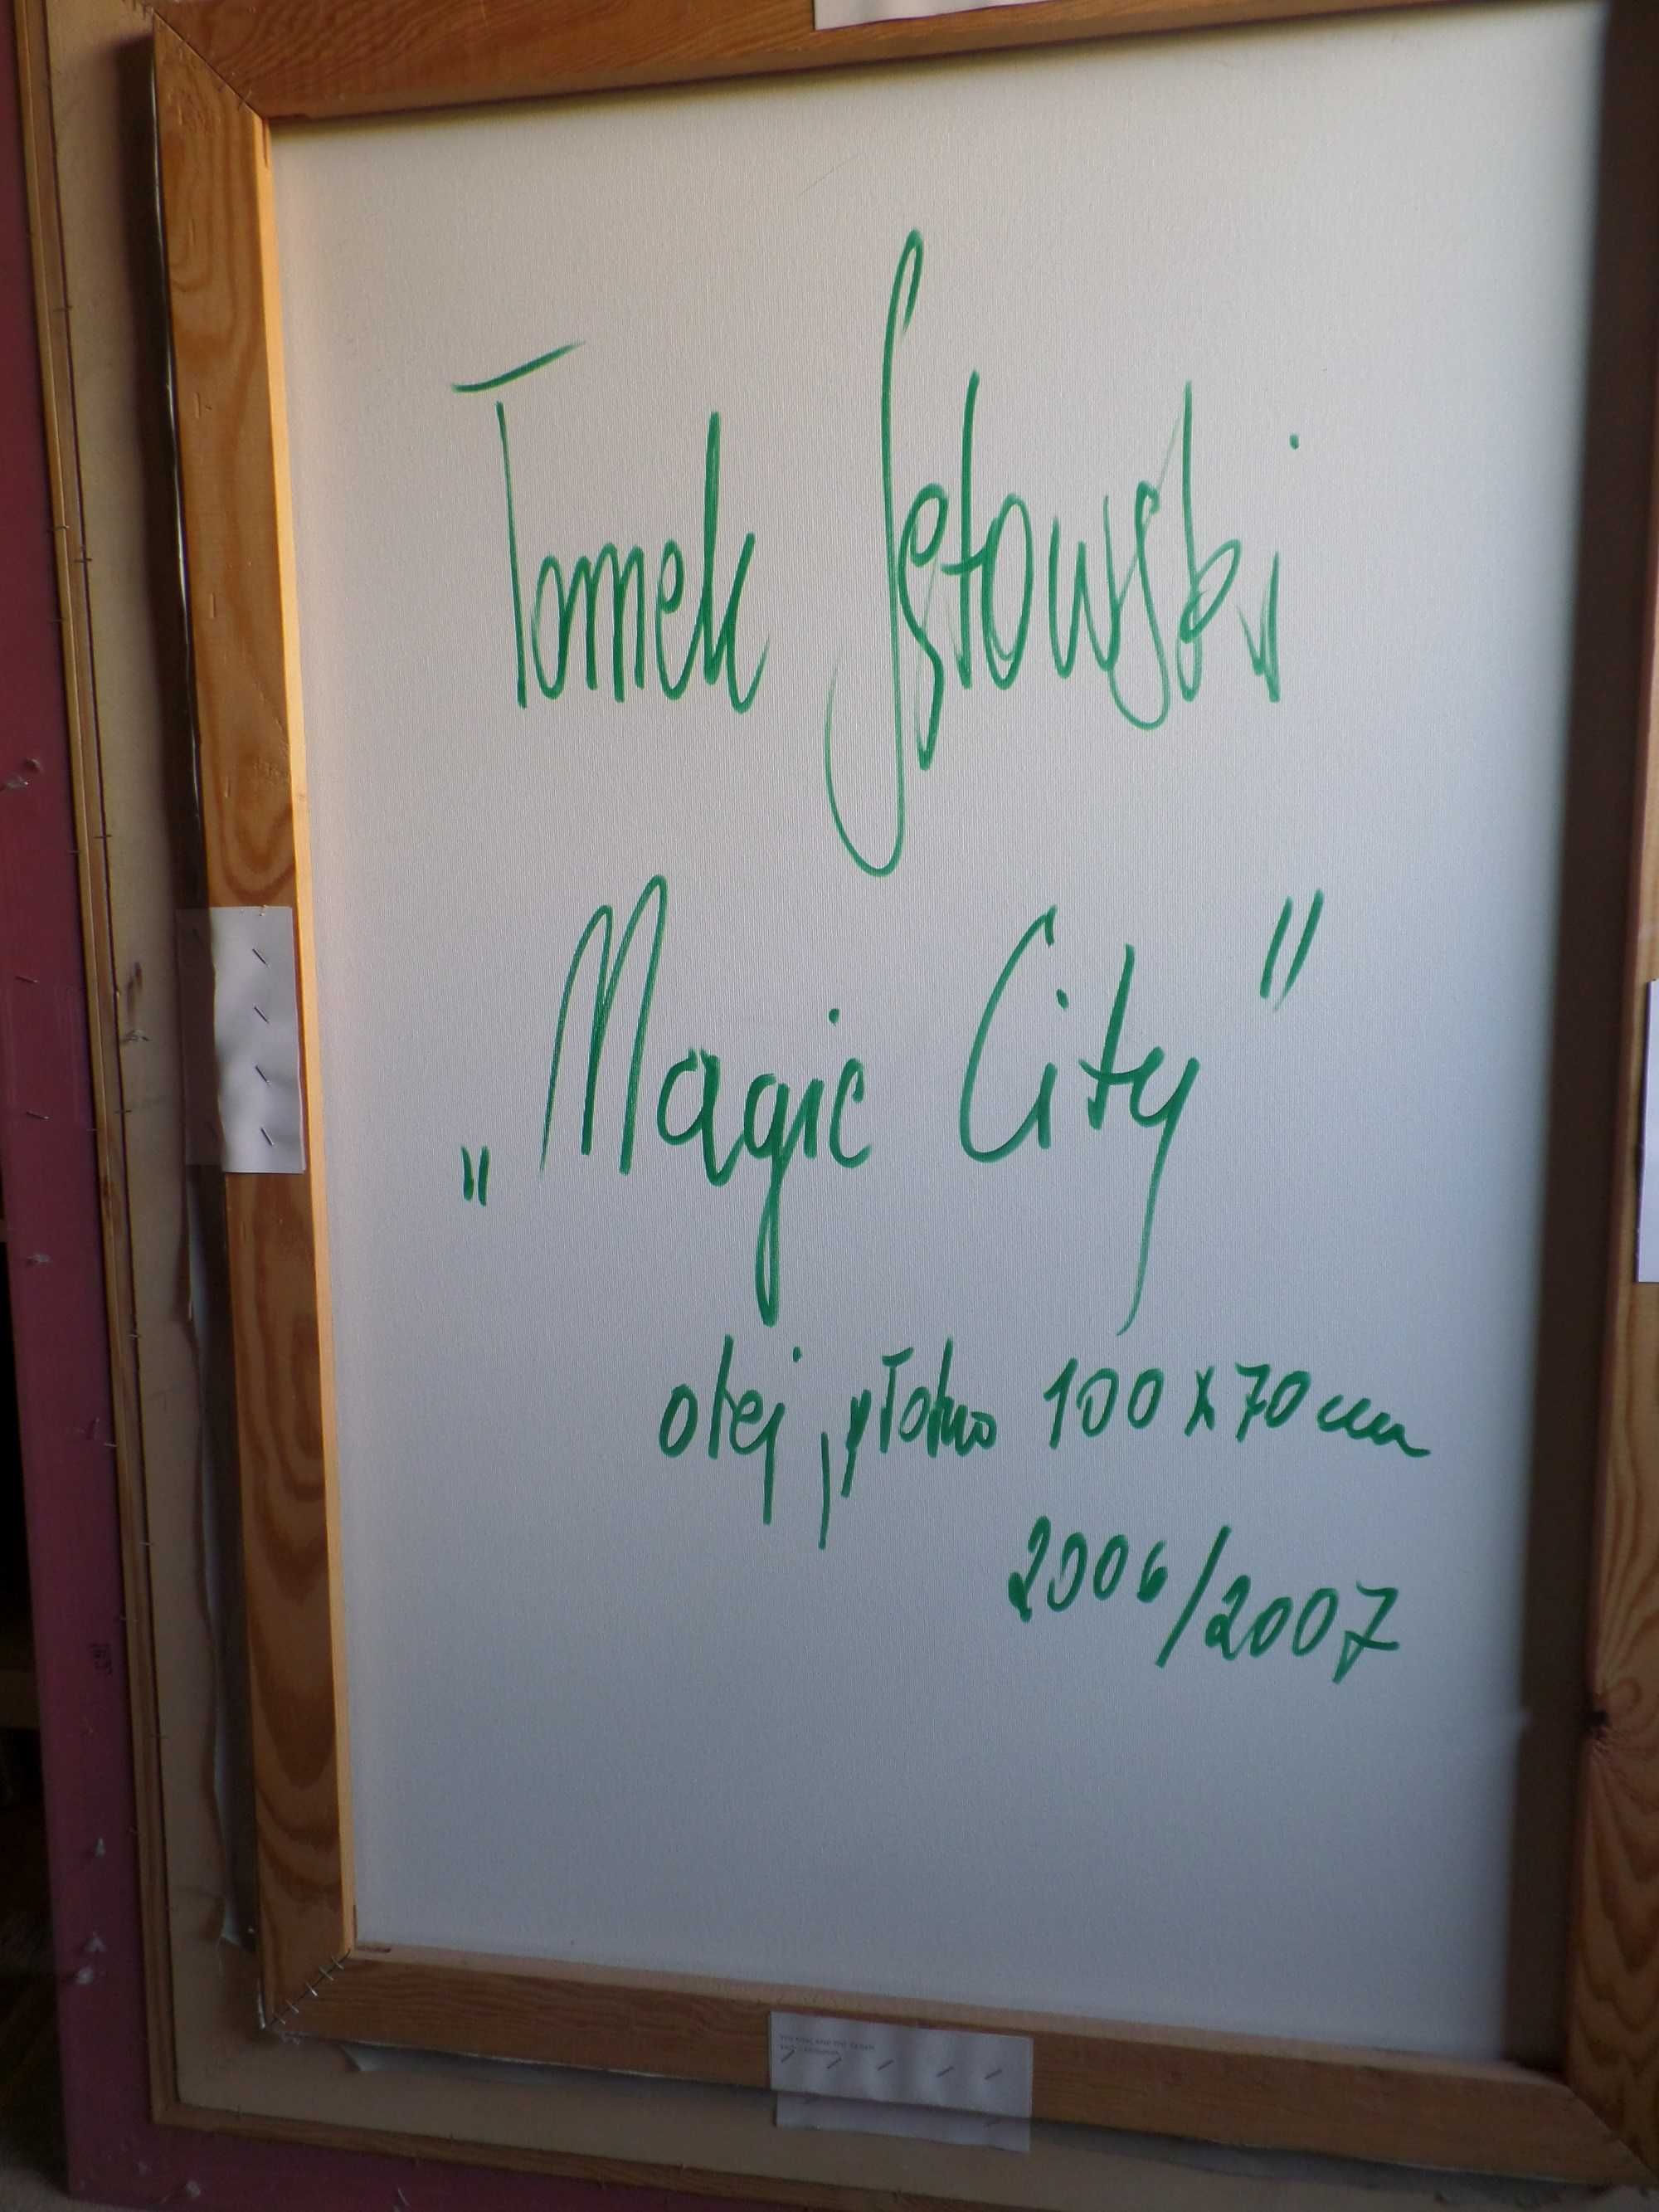 Tomek Sętowski
„Magic City"
olej, płótno 100 x 70 cm
2006/2007